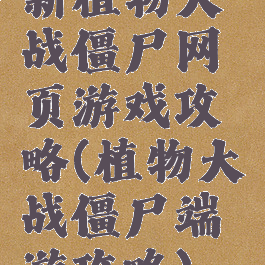 新植物大
战僵尸网
页游戏攻
略(植物大
战僵尸端
游攻略)